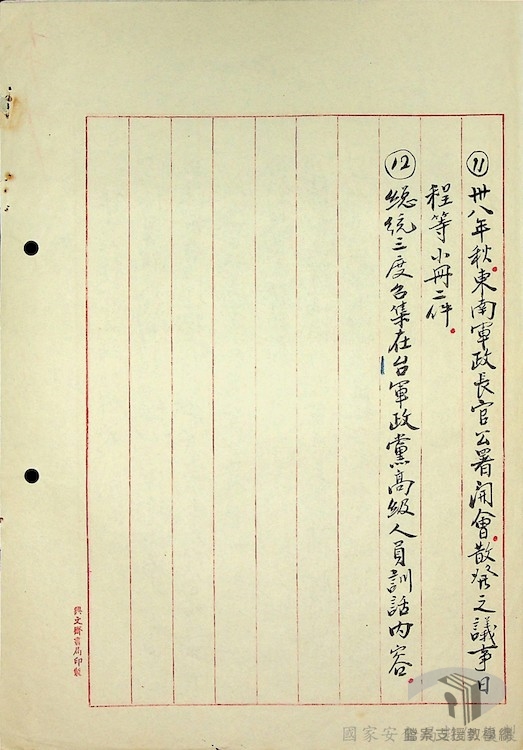 ⑪卅八年秋。東南軍政長官公署開會。散發之議事日
程等小冊二件。
⑫總統三度召集在台軍政黨高級人員訓話內容。
興文齋書局印製
國家安全局
檔案支援教學網